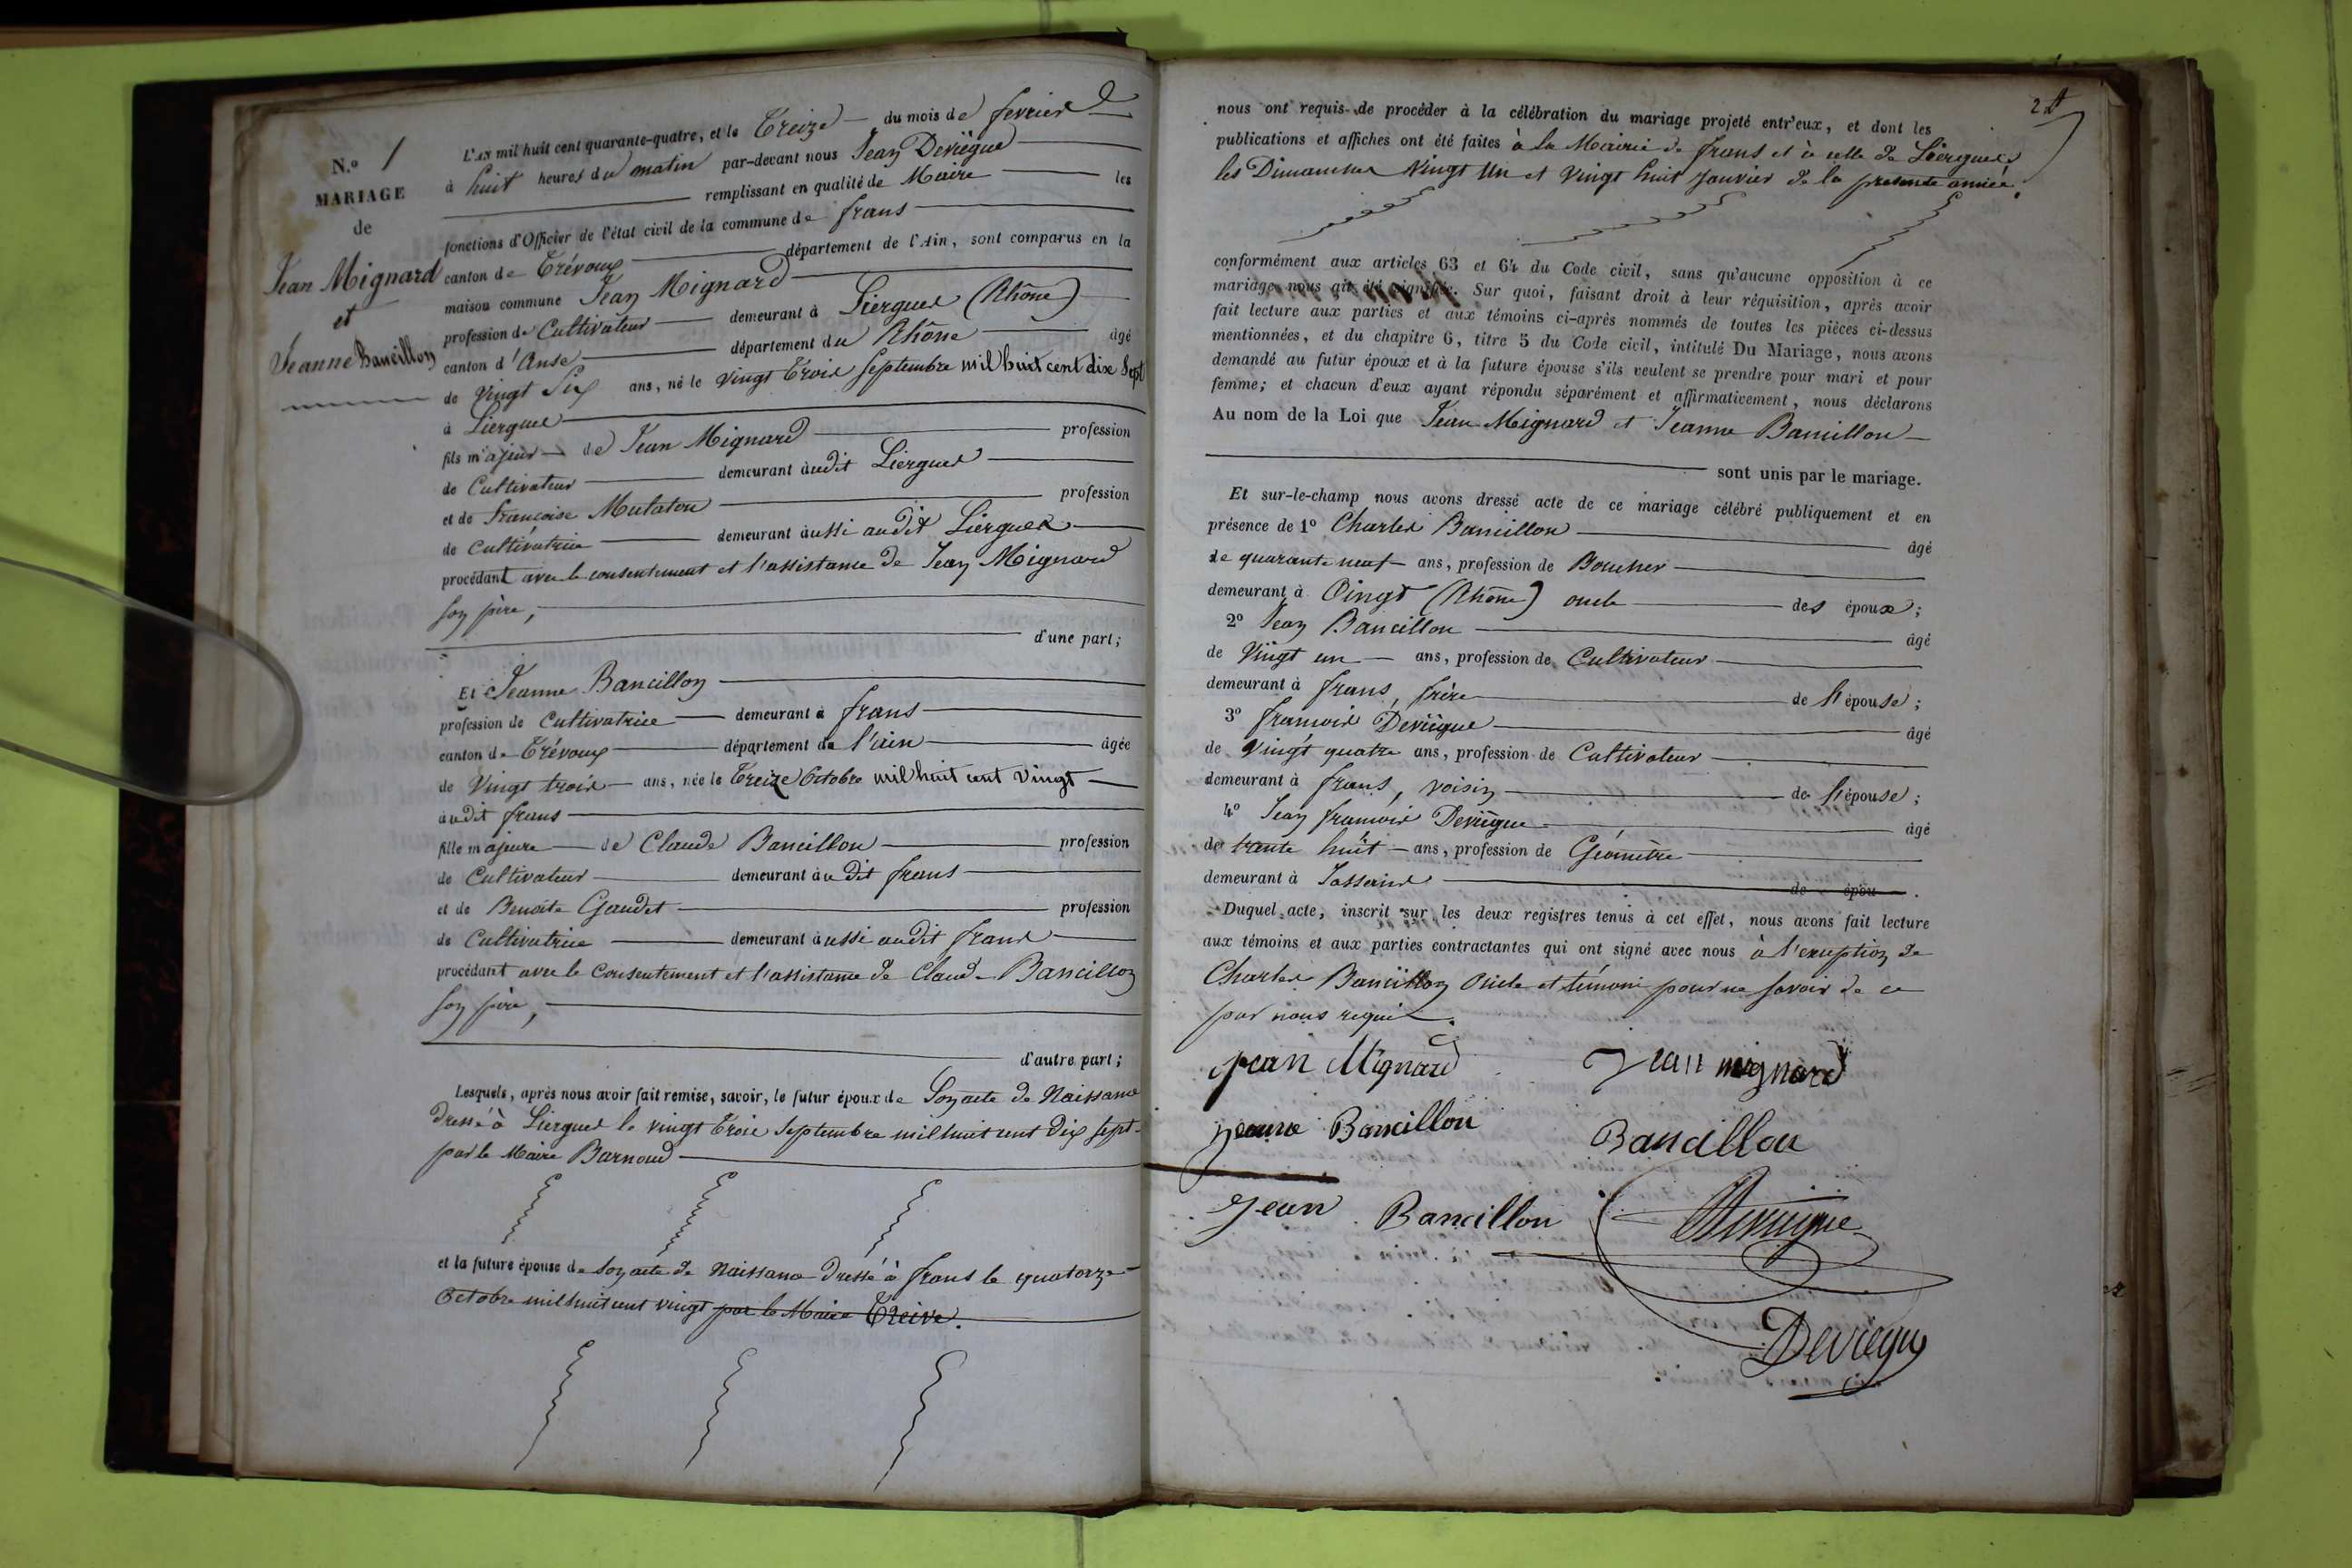 N.o 1
MARIAGE
de
Jean Mignard
et
Jeanne Bancillon
L'AN mil huit cent quarante-quatre, et le Treize du mois de fevrier
à huit heures du matin par-devant nous Jean Deviègue
remplissant en qualité de Maire les
fonctions d'Officier de l'état civil de la commune de frans
canton de Trévoux département de l'Ain, sont comparus en la
maison commune Jean Mignard
profession de Cultivateur demeurant à Liergues (Rhône)
canton d'Anse département du Rhône âgé
de Vingt Six ans, né le vingt Trois Septembre mil huit cent dix Sept
à Liergues
fils majeur de Jean Mignard profession
de Cultivateur demeurant audit Liergues
et de françoise Mulaton profession
de Cultivatrice demeurant aussi audit Liergues
procédant avec le consentement et l'assistance de Jean Mignard
son père,
d'une part;
Et Jeanne Bancillon
profession de Cultivatrice demeurant à frans
canton de Trévoux département de l'ain âgée
de Vingt trois ans, née le Treize Octobre mil huit cent Vingt
audit frans
fille majeure de Claude Bancillon profession
de Cultivateur demeurant au dit frans
et de Benoite Gaudet profession
de Cultivatrice demeurant aussi audit frans
procédant avec le Consentement et l'assistance de Claude Bancillon
son père,
d'autre part;
Lesquels, après nous avoir fait remise, savoir, le futur époux de Son acte de Naissance
dressé à Liergues le vingt Trois Septembre mil huit cent dix sept
par le Maire Barnoud
et la future épouse de son acte de Naissance dressé à frans le quatorze
Octobre mil huit cent vingt par le Maire Treive.
2
nous ont requis de procéder à la célébration du mariage projeté entr'eux, et dont les
publications et affiches ont été faites à la Mairie de frans et à celle de Liergues
les Dimanches Vingt Un et Vingt huit Janvier de la presente année.
conformément aux articles 63 et 64 du Code civil, sans qu'aucune opposition à ce
mariage nous ait été signifiée. Sur quoi, faisant droit à leur réquisition, après avoir
fait lecture aux parties et aux témoins ci-après nommés de toutes les pièces ci-dessus
mentionnées, et du chapitre 6, titre 5 du Code civil, intitulé Du Mariage, nous avons
demandé au futur époux et à la future épouse s'ils veulent se prendre pour mari et pour
femme; et chacun d'eux ayant répondu séparément et affirmativement, nous déclarons
Au nom de la Loi que Jean Mignard et Jeanne Bancillon
sont unis par le mariage.
Et sur-le-champ nous avons dressé acte de ce mariage célébré publiquement et en
présence de 1o Charles Bancillon âgé
de quarante neuf ans, profession de Boucher
demeurant à Oingt (Rhône) oncle des époux;
2o Jean Bancillon âgé
de Vingt un ans, profession de Cultivateur
demeurant à frans, frère de l'épouse;
3o francois Deviègue âgé
de Vingt quatre ans, profession de Cultivateur
demeurant à frans, voisin de l'épouse;
4o Jean francois Deviègue âgé
de trente huit ans, profession de Géomètre
demeurant à Jasseins de épou .
Duquel acte, inscrit sur les deux registres tenus à cet effet, nous avons fait lecture
aux témoins et aux parties contractantes qui ont signé avec nous à l'exception de
Charles Bancillon Oncle et témoin pour ne savoir de ce
par nous requis.
jean Mignard jean mignard
jeanne Bancillon Bancillon
Jean Bancillon Deviègue
Deviègue